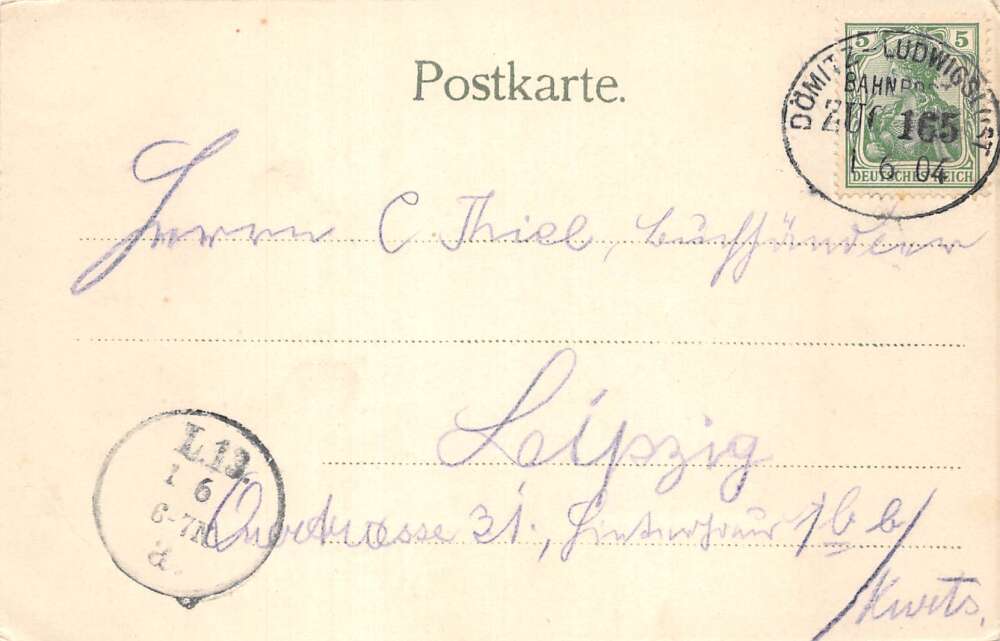 Postkarte.
5 5
DEUTSCHES REICH
DÖMITZ-LUDWIGSLUST
BAHNPOST
ZUG 165
1 6 04
Herrn C Thiel, Buchhändler
Leipzig
L.13.
1 6
6-7N
a.
Querstrasse 31, Hinterhaus 1 b b/
Kurts.